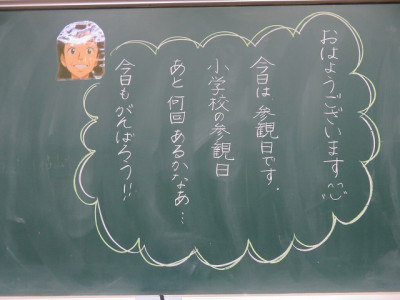 おはようございます
今日は 参観日です.
小学校の参観日
あと 何回 あるかなあ…
今日も がんばろう!!